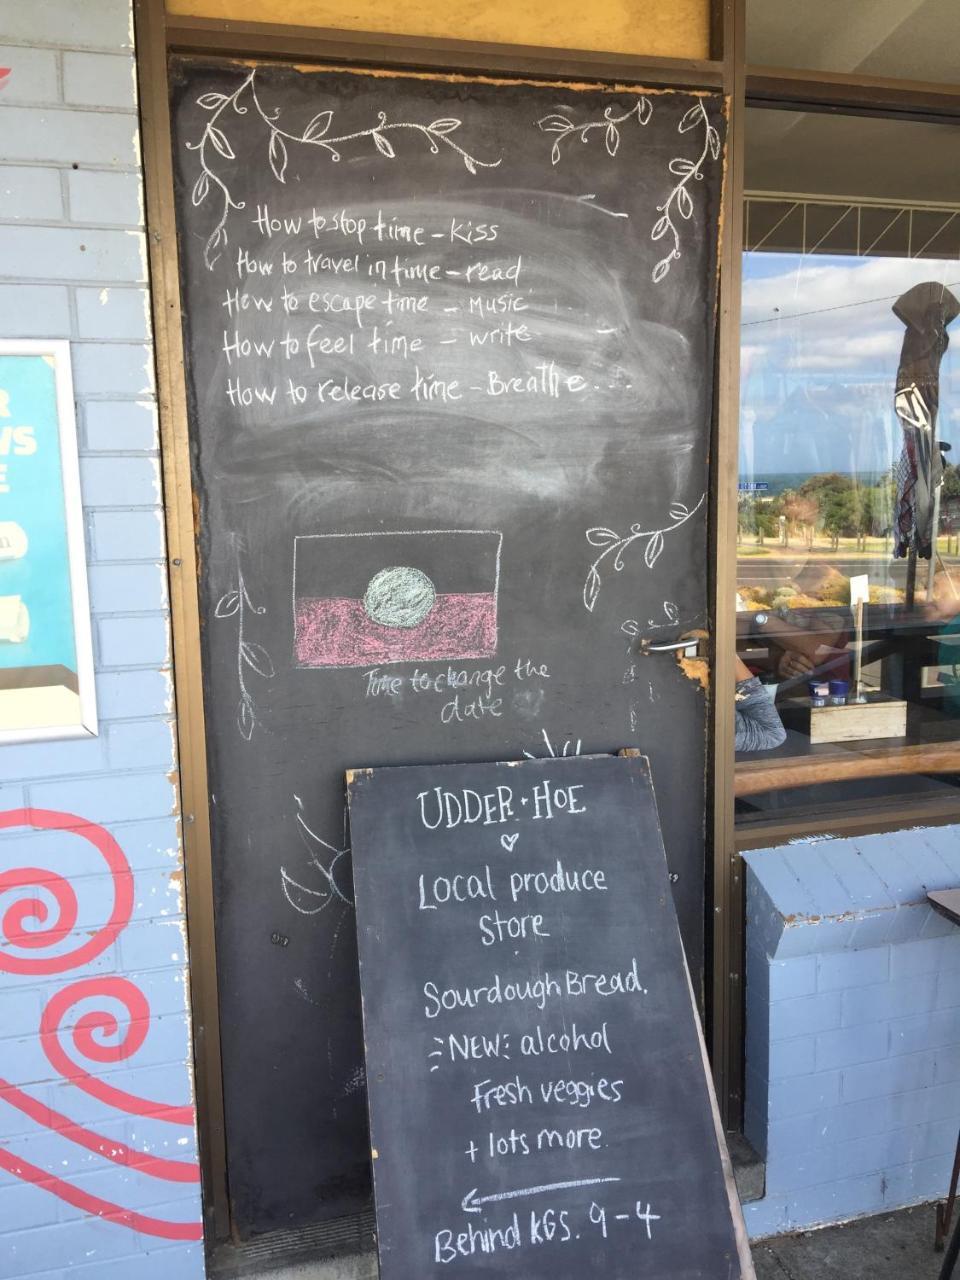 How to stop time - kiss
How to travel in time - read
How to escape time - Music
How to feel time - write
How to release time - Breathe...
Time to change the
date
UDDER + HOE
Local produce
Store
Sourdough Bread.
NEW alcohol
Fresh veggies
+ lots more.
Behind KGS. 9-4